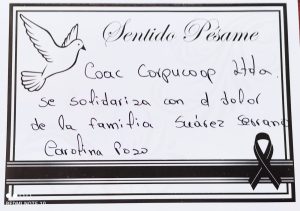 Sentido Pésame
Coac Corpucoop Ltda.
se solidariza con el dolor
de la familia Suárez Serrano
Carolina Pozo
REDMI NOTE 10